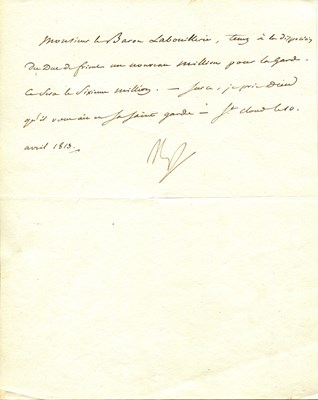 Monsieur le Baron Labouillerie, tenez à la disposition
du Duc de frioul un nouveau million pour la Garde.
Ce sera le sixieme million. — Sur ce, je prie Dieu
qu'il vous ait en sa sainte garde — St cloud le 10.
avril 1813.
Np